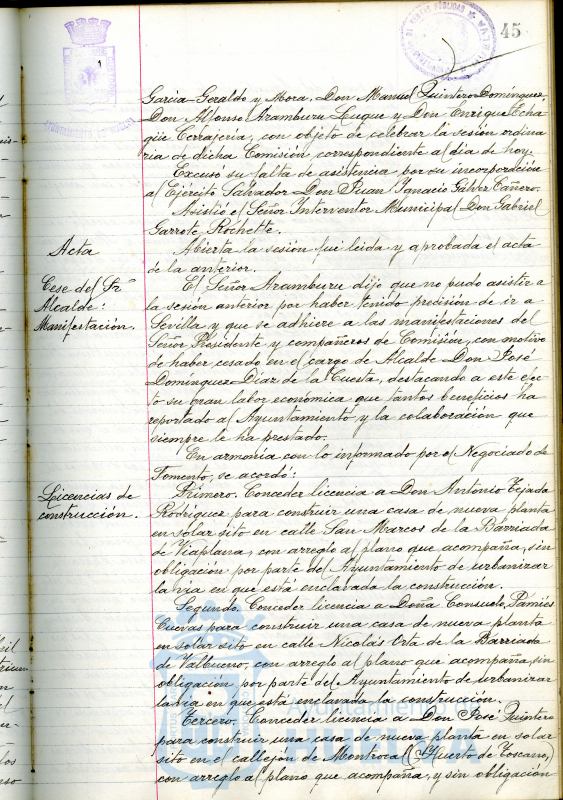 45
García-Geraldo y Mora, Don Manuel Quintero Domínguez,
Don Alfonso Aramburu Luque y Don Enrique Echá
güe Cerrajería, con objeto de celebrar la sesión ordina
ria de dicha Comisión, correspondiente al día de hoy.
Excusó su falta de asistencia por su incorporación
al Ejército Salvador Don Juan Ignacio Gálvez Cañero.
Asistió el Señor Interventor Municipal Don Gabriel
Garrote Rochette.
Acta
Abierta la sesión fué leida y aprobada el acta
de la anterior.
Cese del Sr.
Alcalde:
Manifestación.
El Señor Aramburu dijo que no pudo asistir a
la sesión anterior por haber tenido precisión de ir a
Sevilla y que se adhiere a las manifestaciones del
Señor Presidente y compañeros de Comisión, con motivo
de haber cesado en el cargo de Alcalde Don José
Domínguez Díaz de la Cuesta, destacando a este efec
to su gran labor económica que tantos beneficios ha
reportado al Ayuntamiento y la colaboración que
siempre le ha prestado.
En armonía con lo informado por el Negociado de
Fomento, se acordó:
Licencias de
construcción.
Primero. Conceder licencia a Don Antonio Tejada
Rodríguez para construir una casa de nueva planta
en solar sito en calle San Marcos de la Barriada
de Viaplana, con arreglo al plano que acompaña, sin
obligación por parte del Ayuntamiento de urbanizar
la via en que está enclavada la construcción.
Segundo. Conceder licencia a Doña Consuelo Pamiés
Cuevas para construir una casa de nueva planta
en solar sito en calle Nicolás Orta de la Barriada
de Valbueno, con arreglo al plano que acompaña, sin
obligación por parte del Ayuntamiento de urbanizar
la via en que está enclavada la construcción.
Tercero. Conceder licencia a Don José Quintero
para construir una casa de nueva planta en solar
sito en el callejón de Montrocal (Huerto de Toscano,)
con arreglo al plano que acompaña, y sin obligación
Ayuntamiento de
HUELVA